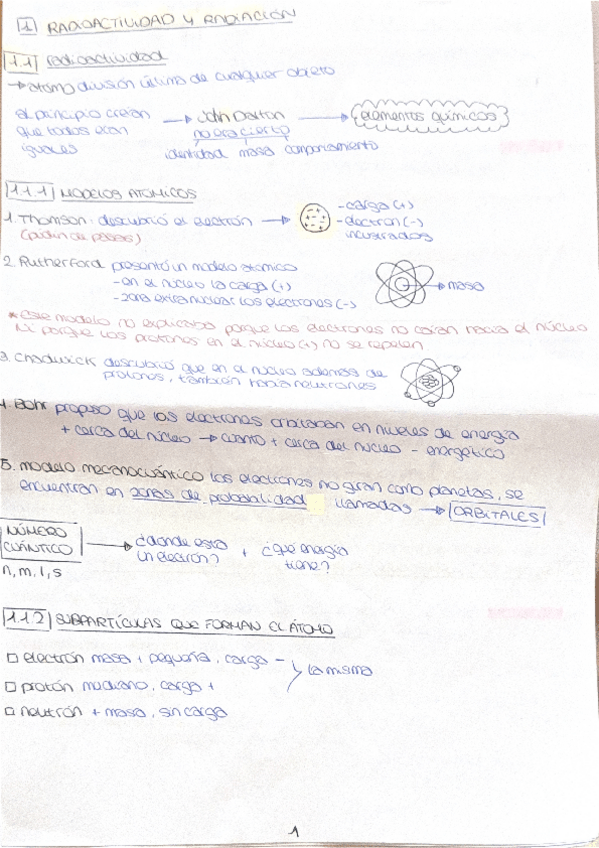 1 RADIOACTIVIDAD Y RADIACIÓN
1.1 radioactividad
→ átomo división última de cualquier objeto
al principio creían → John Dalton → elementos químicos
que todos eran no era cierto
iguales identidad masa comportamiento
1.1.1 MODELOS ATÓMICOS
1. Thomson: descubrió el electrón → - carga (+)
(pudin de pasas) - electrón (-)
incrustrados
2. Rutherford presentó un modelo atómico
- en el núcleo la carga (+) → masa
- zona extranuclear los electrones (-)
* Este modelo no explicaba porque los electrones no caían hacia el núcleo
Ni porque los protones en el núcleo (+) no se repelen
3. Chadwick descubrió que en el núcleo además de
protones, también había neutrones
4. Bohr propuso que los electrones orbitaban en niveles de energía
+ cerca del núcleo → cuanto + cerca del núcleo - energético
5. modelo mecanocuántico los electrones no giran como planetas, se
encuentran en zonas de probabilidad llamadas → ORBITALES
NÚMERO
CUÁNTICO → ¿dónde está un electrón? + ¿qué energía tiene?
n, m, l, s
1.1.2 SUBPARTÍCULAS QUE FORMAN EL ÁTOMO
□ electrón masa + pequeña, carga -
□ protón mediano, carga + la misma
□ neutrón + masa, sin carga
1